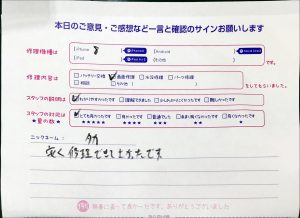 本日のご意見・ご感想など一言と確認のサインお願いします
修理機種は
iPhone 8
Android
iPad
その他
修理内容は
バッテリー交換 画面修理 水没修理 パーツ修理
相談 その他
をしてもらいました。
スタッフの説明は
わかりやすかったです 理解できました 少しわかりにくかったです 難しかったです
スタッフの対応は
★星の数★
とても良かったです 良かったです 普通でした あまり良くなかったです 良くなかったです
★★★★★ ★★★★ ★★★ ★★ ★
ニックネーム:
安く修理できてよかったです
綺麗に直って良かったです。ありがとうございました